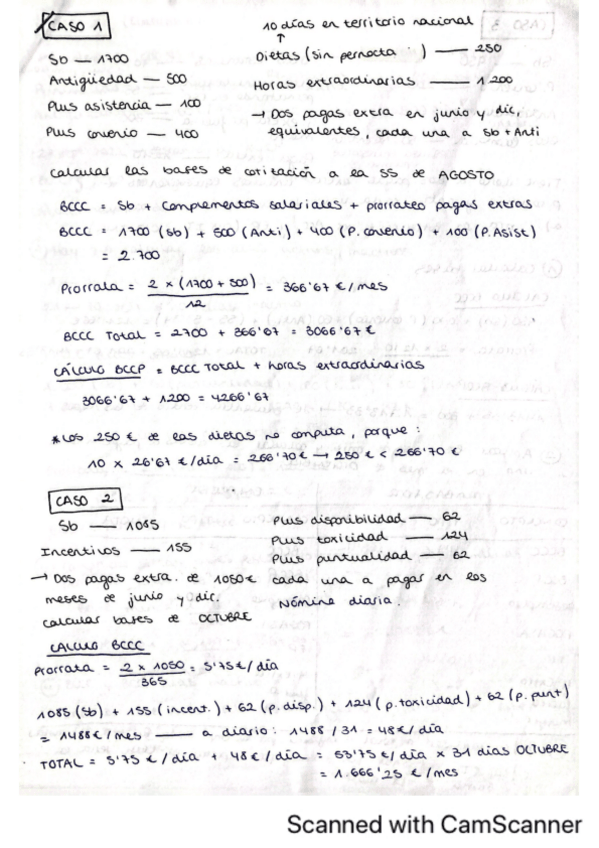 CASO 1
10 días en territorio nacional
↑
Sb — 1700
Dietas (sin pernocta) — 250
Antigüedad — 500
Horas extraordinarias — 1200
Plus asistencia — 100
→ Dos pagas extra en junio y dic,
Plus convenio — 400
equivalentes, cada una a Sb + Anti
Calcular las bases de cotización a la SS de AGOSTO
BCCC = Sb + complementos salariales + prorrateo pagas extras
BCCC = 1700 (sb) + 500 (Anti) + 400 (P. convenio) + 100 (P. Asist)
= 2.700
Prorrata = 2 x (1700 + 500) / 12 = 366'67 €/mes
BCCC Total = 2700 + 366'67 = 3066'67 €
CÁLCULO BCCP = BCCC Total + horas extraordinarias
3066'67 + 1200 = 4266'67
* Los 250 € de las dietas no computa, porque:
10 x 26'67 €/día = 266'70 € → 250 € < 266'70 €
CASO 2
Sb — 1085
Plus disponibilidad — 62
Plus toxicidad — 124
Incentivos — 155
Plus puntualidad — 62
→ Dos pagas extra. de 1050 € cada una a pagar en los
meses de junio y dic. Nómina diaria.
calcular bases de OCTUBRE
CALCULO BCCC
Prorrata = 2 x 1050 / 365 = 5'75 €/día
1085 (Sb) + 155 (incent.) + 62 (p. disp.) + 124 (p. toxicidad) + 62 (p. punt)
= 1488 €/mes — a diario: 1488 / 31 = 48 €/día
TOTAL = 5'75 €/día + 48 €/día = 53'75 €/día x 31 días OCTUBRE
= 1.666'25 €/mes
Scanned with CamScanner